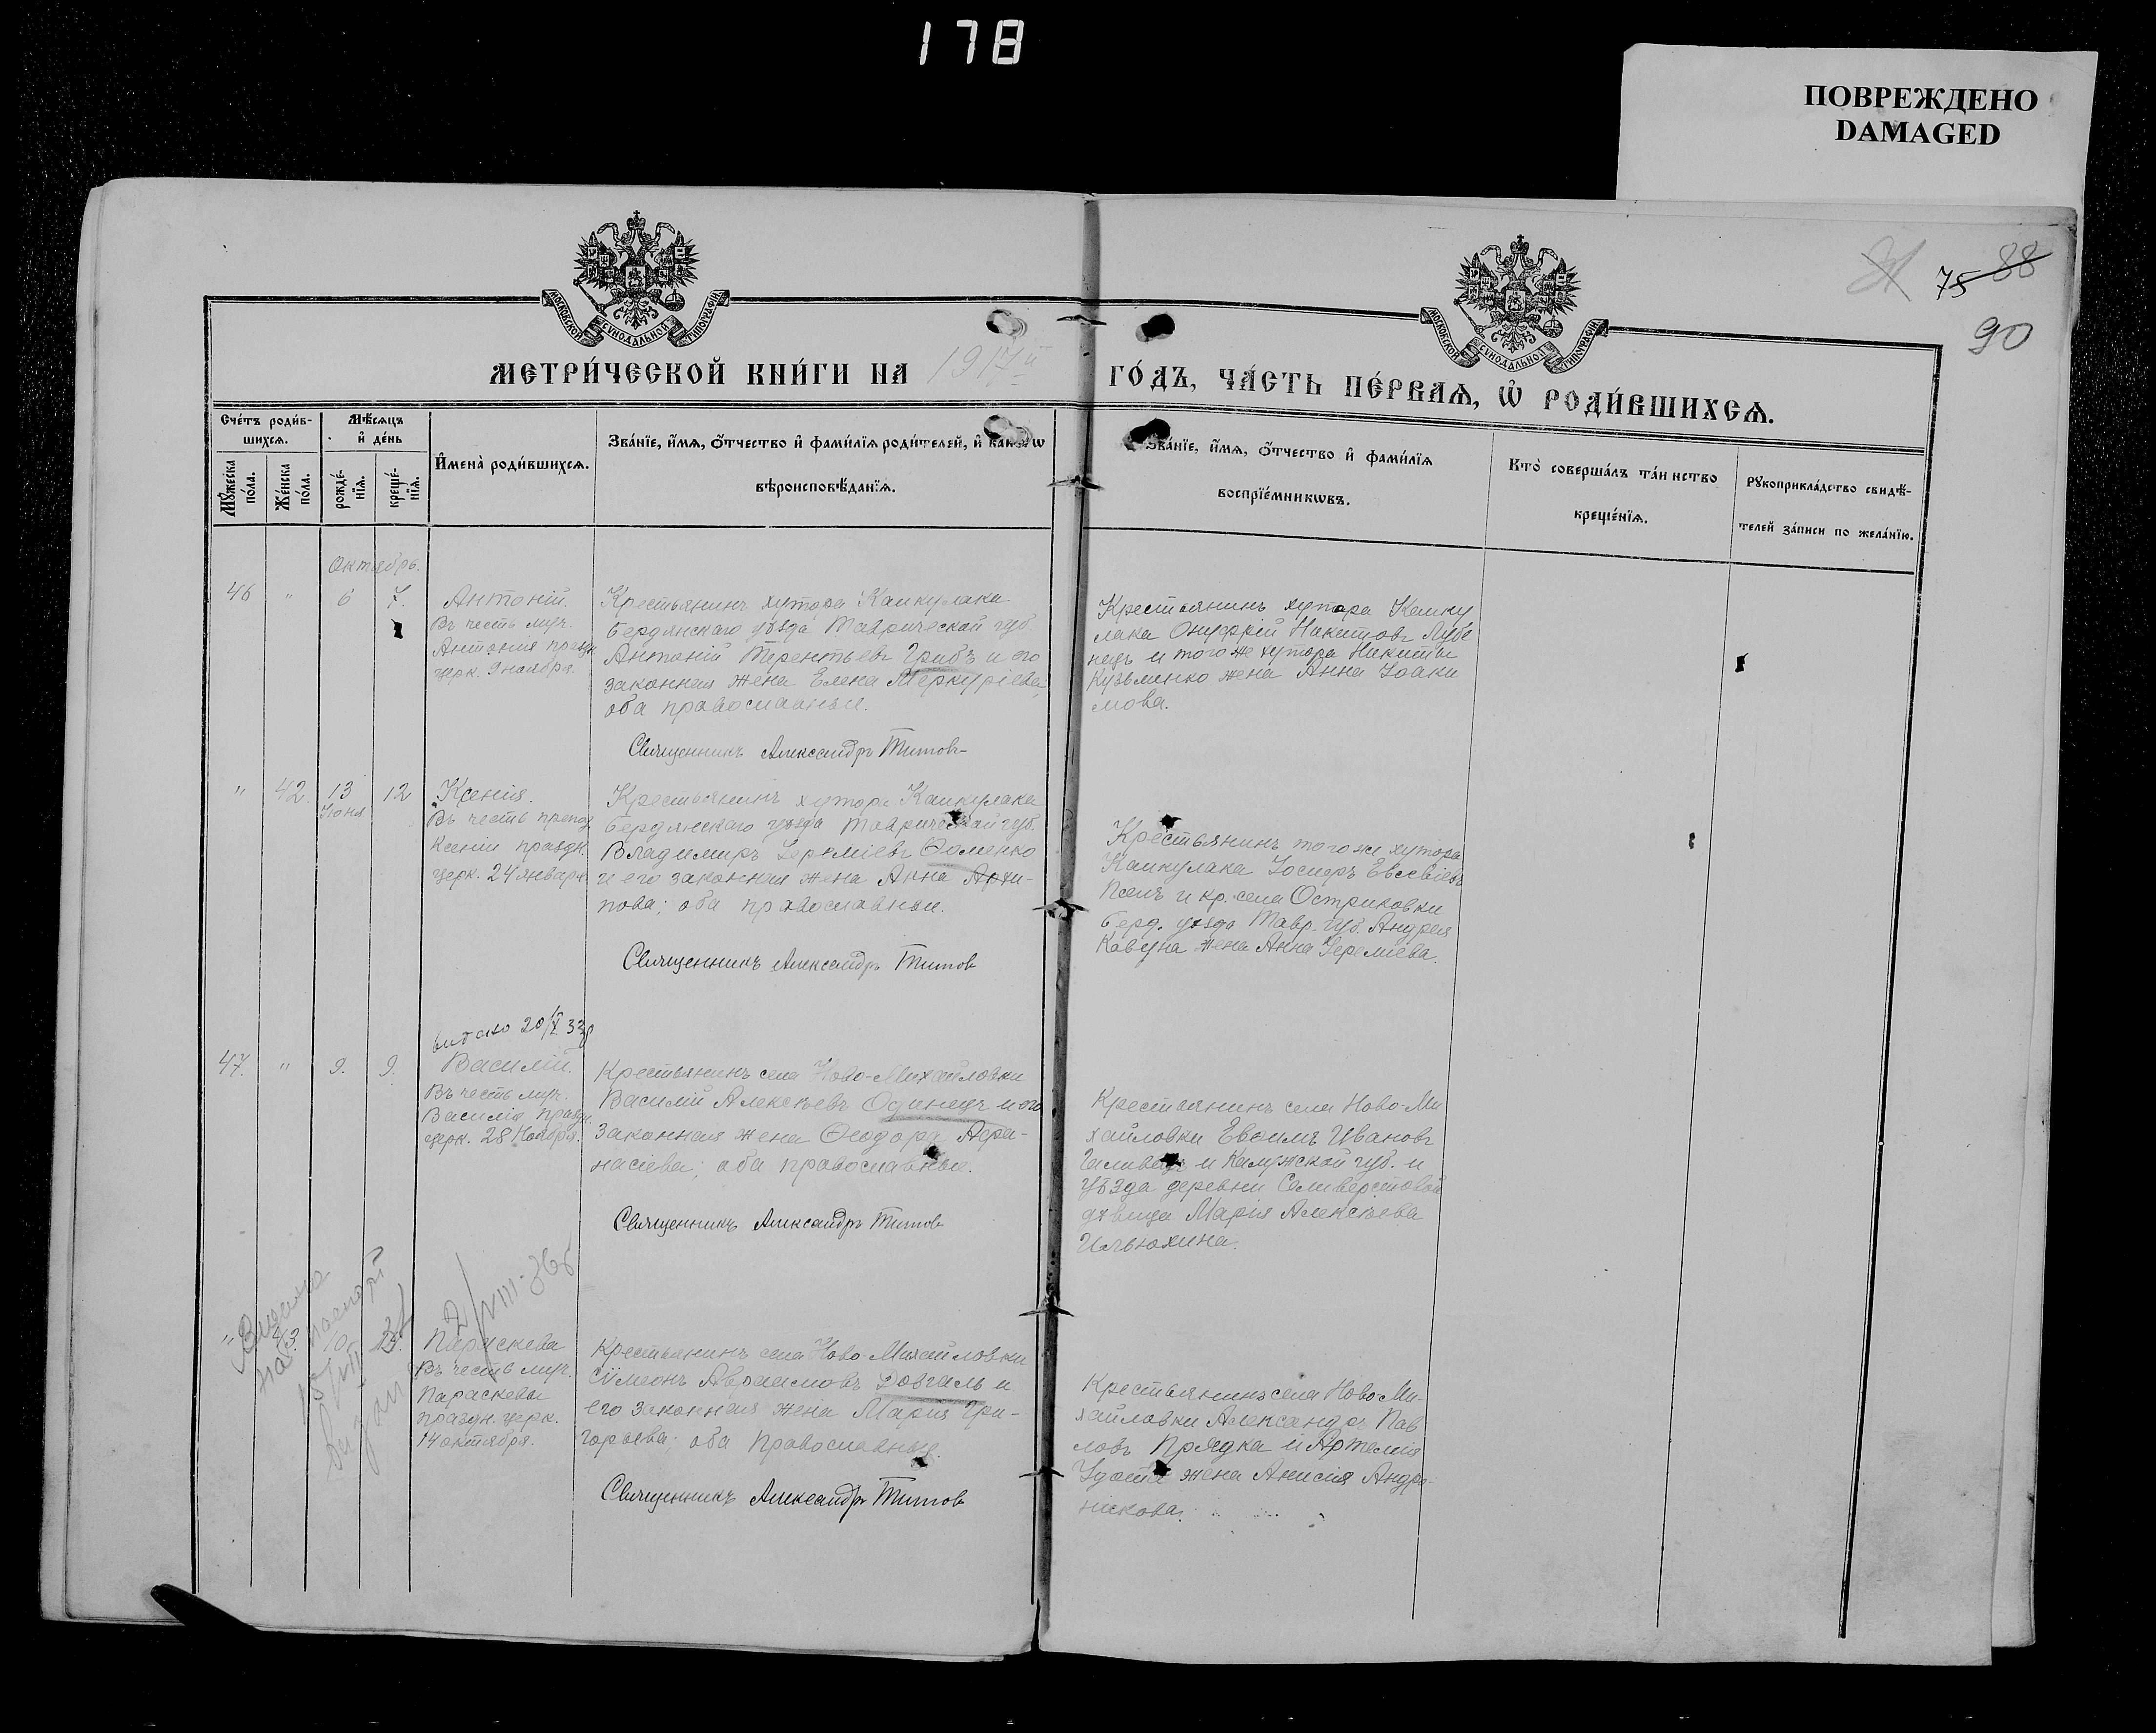 178
ПОВРЕЖДЕНО
DAMAGED
75 88
90
МОСКОВСКОЙ СѴНОДАЛЬНОЙ ТИПОГРАФІИ
МОСКОВСКОЙ СѴНОДАЛЬНОЙ ТИПОГРАФІИ
МЕТРИ́ЧЕСКОЙ КНИ́ГИ НА 1917й
ГО́ДЪ, ЧА́СТЬ ПЕ́РВАѦ, Ѡ҆ РОДИ́ВШИХСѦ.
Сче́тъ роди́в-
шихсѧ.
Мѣ́сѧцъ
и҆ де́нь
Мꙋ́жеска
по́ла.
Же́нска
по́ла.
рожде́-
нїѧ.
креще́-
нїѧ.
И҆мена̀ роди́вшихсѧ.
Зва́нїе, и҆́мѧ, ѻ҆́тчество и҆ фами́лїѧ роди́телей, и҆ како́гѡ
вѣроисповѣ́данїѧ.
Зва́нїе, и҆́мѧ, ѻ҆́тчество и҆ фами́лїѧ
воспрїе́мникѡвъ.
Кто̀ соверша́лъ та́инство
креще́нїѧ.
Рꙋкоприкла́дство свидѣ́-
телей за́писи по жела́нїю.
Октябрь.
46 " 6 7.
Антоній.
Въ честь муч.
Антонія праздн.
церк. 9 ноября.
Крестьянинъ хутора Каинкулака
Бердянскаго уѣзда Таврической губ.
Антоній Терентьевъ Грибъ и его
законная жена Елена Меркуріева,
оба православные.
Священникъ Александръ Титовъ
Крестьянинъ хутора Каинку
лака Онуфрій Никитовъ Лубе
нецъ и того же хутора Никиты
Кузьменко жена Анна Іоаки
мова.
" 42. 13 12
Іюня
Ксенія.
Въ честь препод.
Ксеніи праздн.
церк. 24 января.
Крестьянинъ хутора Каинкулака
Бердянскаго уѣзда Таврической губ.
Владимиръ Іереміевъ Ѳоменко
и его законная жена Анна Архи-
пова; оба православные.
Священникъ Александръ Титовъ
Крестьянинъ того же хутора
Каинкулака Іосифъ Евсевіевъ
Псёлъ и кр. села Остриковки
Берд. уѣзда Тавр. губ. Андрея
Кавуна жена Анна Іереміева.
видано 20/X 33р
47. " 9. 9.
Василій.
Въ честь муч.
Василія праздн.
церк. 28 Ноября.
Крестьянинъ села Ново-Михайловки
Василій Алексѣевъ Одинецъ и его
законная жена Ѳеодора Афа-
насіева; оба православные.
Священникъ Александръ Титовъ
Крестьянинъ села Ново-Ми
хайловки Евѳимъ Ивановъ
и Калужской губ. и
уѣзда деревни Селиверстовой
дѣвица Марія Алексѣева
Ильюхина.
2/VIII-36р
" 43. 10.
Параскева
Въ честь муч.
Параскевы
праздн. церк.
14 октября.
Крестьянинъ села Ново-Михайловки
Сѵмеонъ Авраамовъ Довгаль и
его законная жена Марія Гри-
горьева; оба православные.
Священникъ Александръ Титовъ
Крестьянинъ села Ново-Ми-
хайловки Александръ Пав
ловъ Прядка и Артемія
жена Анисія Андро-
никова.